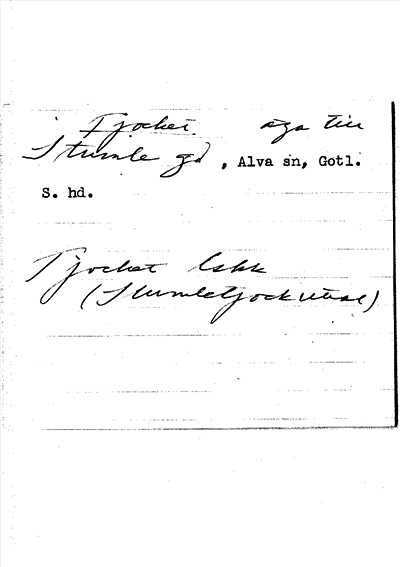 Tjocket. äga till
Stumle gd, Alva sn, Gotl.
S. hd.
Tjocket Lskk
(Stumletjock